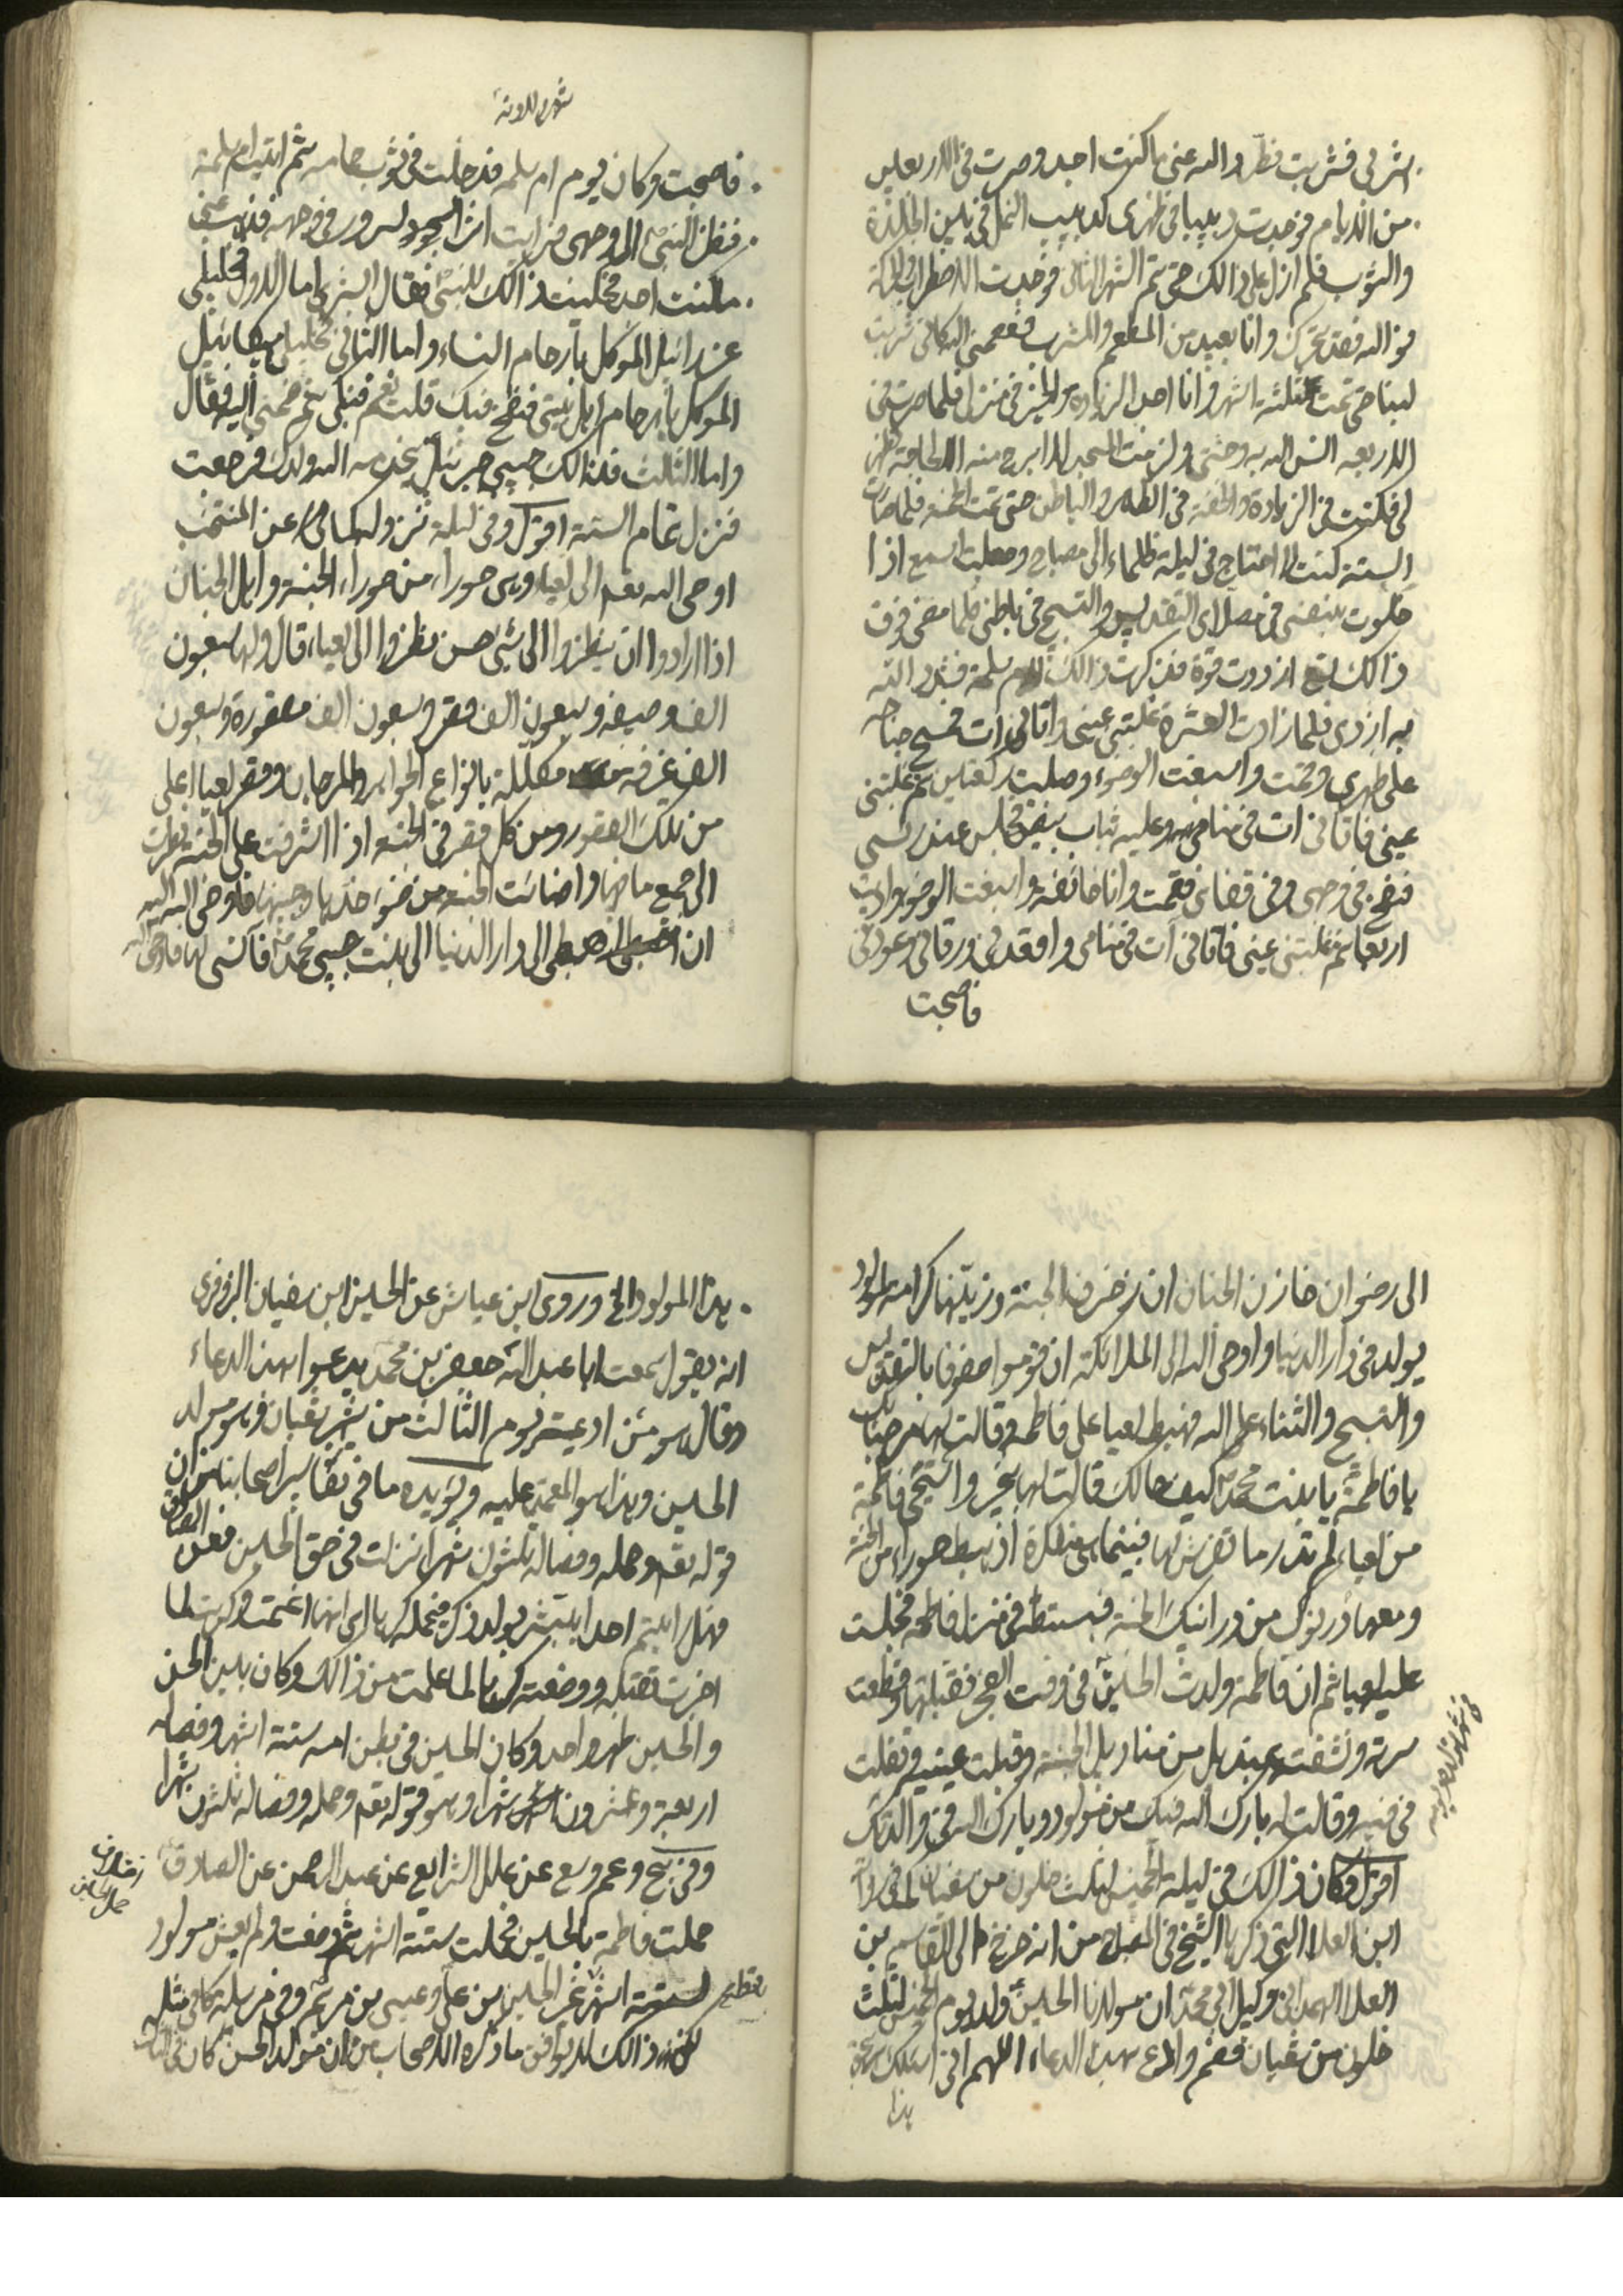 اشربي فشربت فطرد الله عني ما كنت اجد وصرت في الاربعين
من الايام فوجدت دبيبا في ظهري كدبيب النمل في بين الجلدة
والثوب فلم ازل على ذالك حتى تم الشهر الثاني فوجدت الاضطراب والحركة
فوالله لقد تحرك وانا بعيد من المطعم والمشرب فعصمني الله كاني شربت
لبنا حتى تمت الثلثة اشهر وانا اجد الزيادة والخير في منزلي فلما صرت في
الاربعة انس الله به وحشتي ولزمت المسجد لا ابرح منه الا لحاجة تظهر
لي فكنت في الزيادة والخفة في الظاهر والباطن حتى تمت الخمسة فلما صارت
الستة كنت لا احتاج في ليلة ظلماء الى مصباح وجعلت اسمع اذا
خلوت بنفسي في مصلاي التقديس والتسبيح في باطني فلما مضى فوق
ذالك تسع ازددت قوة فذكرت ذالك لام سلمة فشد الله
به ازري فلما زادت العشرة غلبتني عيني واتاني آت فمسح جناحه
على ظهري وقمت واسبغت الوضوء وصليت ركعتين ثم غلبتني
عيني فاتاني آت في منامي وعليه ثياب بيض فجلس عند راسي
فنفخ في وجهي وفي قفاي فقمت وانا خائفة واسبغت الوضوء واديت
اربعا ثم غلبتني عيني فاتاني آت في منامي واقعدني ورقاني وعوذني
فاصبحت
فاصبحت وكان يوم ام سلمة فدخلت في ثوب حمامة ثم اتيت ام سلمة
فنظر النبي الى وجهي فرايت اثر السرور في وجهه فذهب عني
ما كنت اجد فحكيت ذالك للنبي فقال ابشري اما الاول فخليلي
عزرائيل الموكل بارحام النساء واما الثاني فخليلي ميكائيل
الموكل بارحام اهل بيتي فنفخ فيك قلت نعم فبكى ثم ضمني اليه فقال
واما الثالث فذالك حبيبي جبرئيل يخدمه الله ولدك فرجعت
فنزل تمام الستة اقول وفي ليلة نزوله كما في عن المنتخب
اوحى الله تعم الى لعيا وهي حوراء من حوراء الجنة واهل الجنان
اذا ارادوا ان ينظروا الى شيء حسن نظروا الى لعياء قال ولها سبعون
الف وصيفة وسبعون الف قصر وسبعون الف مقصورة وسبعون
الف غرفة مكللة بانواع الجواهر والمرجان وقصر لعيا اعلى
من تلك القصور ومن كل قصر في الجنة اذا اشرفت على الجنة نظرت
الى جميع ما فيها واضائت الجنة من ضوء خدها وجبينها فاوحى الله اليها
ان اهبطي الى دار الدنيا الى بنت حبيبي محمد فآنسي لها فاوحى الله
الى رضوان خازن الجنان ان زخرف الجنة وزينها كرامة لمولود
يولد في دار الدنيا واوحى الله الى الملائكة ان قوموا صفوفا بالتقديس
والتسبيح والثناء على الله فهبط لعيا على فاطمة وقالت لها مرحبا بك
يا فاطمة يا بنت محمد كيف حالك قالت لها بخير واستحيى فاطمة
من لعيا لم تدر ما تفرش لها فبينما هي متفكرة اذ هبط حوراء من الجنة
ومعها درنوك من درانيك الجنة فبسطته في منزل فاطمة فجلست
عليه لعيا ثم ان فاطمة ولدت الحسين في وقت الفجر فقبلتها وقطعت
سرته ونشفته بمنديل من مناديل الجنة وقبلت عينيه وتفلت
في فيه وقالت له بارك الله فيك من مولود وبارك الله في والديك
اقول وكان ذالك في ليلة الخميس لثلث خلون من شعبان لما في رواية
ابن العلاء التي ذكرها الشيخ في المصباح من انه خرج الى القاسم بن
العلا الهمداني وكيل ابي محمد ان مولانا الحسين ولد يوم الخميس لثلث
خلون من شعبان فصم وادع بهذا الدعاء اللهم اني اسئلك بحق
هذا
هذا المولود الخ وروى ابن عياش عن الحسين ابن سفيان البزوفري
انه يقول سمعت ابا عبد الله جعفر بن محمد يدعو بهذا الدعاء
وقال هو من ادعية يوم الثالث من شهر شعبان وهو مولد
الحسين وهذا هو المعتمد عليه ويؤيده ما في تفاسير اصحابنا من ان
قوله تعم وحمله وفصاله ثلثون شهرا نزلت في حق الحسين فعن الصادق
فهل رايتم احدا يبشر بولد ذكر فيحمله كرها اي انها اغتمت وكرهت لما
اخبرت بقتله ووضعته كرها لما علمت من ذالك وكان بين الحسن
والحسين طهر واحد وكان الحسين في بطن امه ستة اشهر وفصاله
اربعة وعشرون شهرا وهو قوله تعم وحمله وفصاله ثلثون شهرا
وفي بح وعم وسع عن علل الشرايع عن عبد الرحمن عن الصادق
حملت فاطمة بالحسين فحملت ستة اشهر ثم وضعت ولم يعش مولود
لستة اشهر غير الحسين بن علي وعيسى بن مريم وفي مرسلة كافي مثله
لكن ذالك لا يوافق ما ذكره الاصحاب من ان مولد الحسن كان في